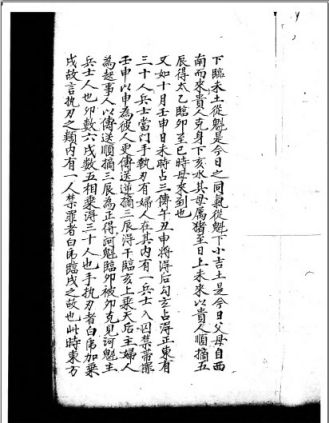 下臨未土從魁是今日之同氣從魁下小吉土是今日父母自西
南而來貴人克身下亥水其母属猪至日上未來以貴人順摘五
辰得太乙臨卯至巳時母來到也
又如十月壬申日未時占三傳午丑申將得后勾玄占淂正東有
三十人兵士當门手执刃有婦人在其内有一兵士入囚禁帶繼
壬申以申為彼人更傳送逆摘三辰淂干臨亥上乘天后主婦人
為起事人以傳送順摘三辰為正得河魁臨卯被卯克見河魁主
兵士人也卯數六戌數五相乘淂三十人也手执刃者白虎加乘
戌故言执刃之類内有一人禁罪者白虎臨戌之故也此時東方